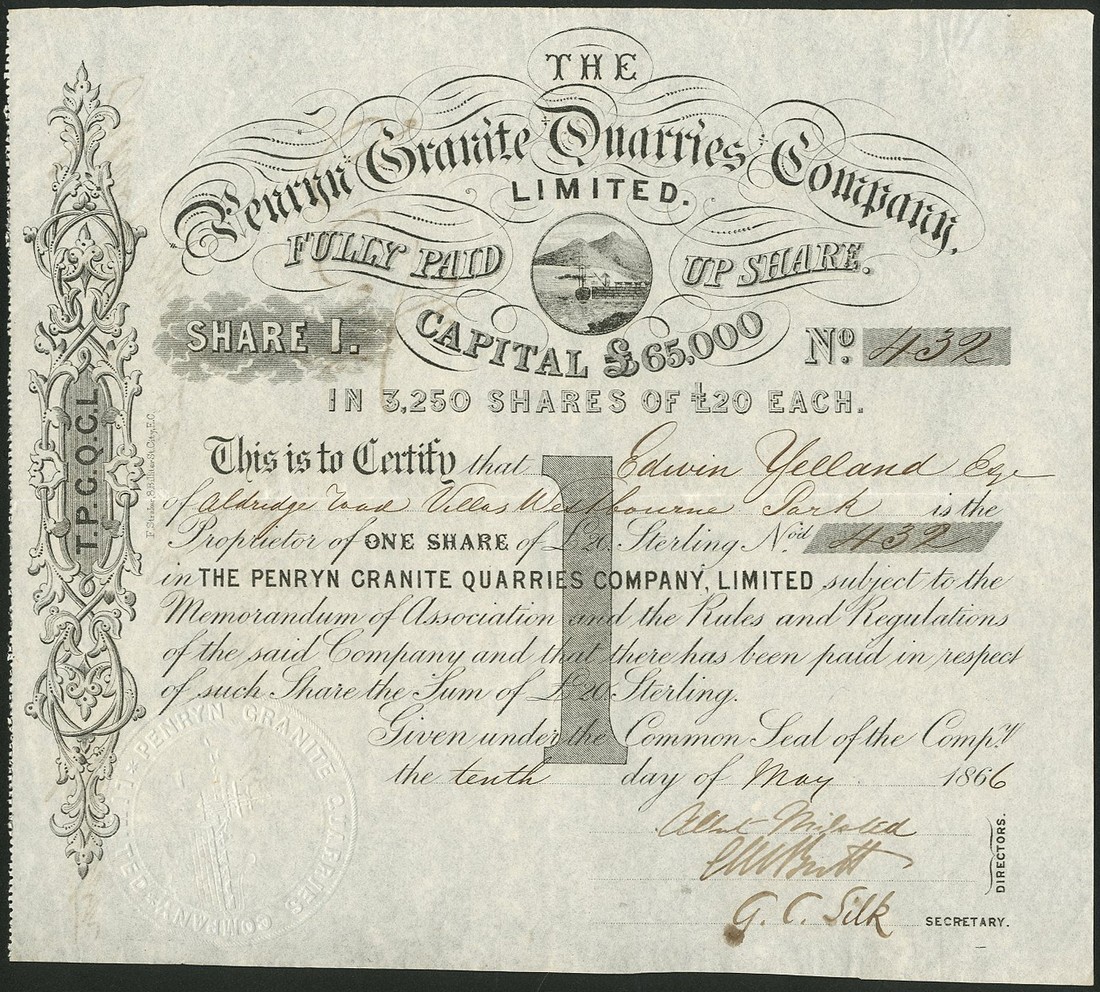 THE
Penryn Granite Quarries Company,
LIMITED.
FULLY PAID UP SHARE.
SHARE 1.
CAPITAL £65,000
No. 432
IN 3,250 SHARES OF £20 EACH.
This is to Certify that Edwin Yelland Esqe
of Aldridge Road Villas Westbourne Park is the
Proprietor of ONE SHARE of £20. Sterling No'd 432
in THE PENRYN GRANITE QUARRIES COMPANY, LIMITED subject to the
Memorandum of Association and the Rules and Regulations
of the said Company and that there has been paid in respect
of such Share the Sum of £20. Sterling.
Given under the Common Seal of the Compy
the tenth day of May 1866
Albert
DIRECTORS.
G. C. Silk SECRETARY.
T.P.G.Q.C.L
PENRYN GRANITE QUARRIES COMPANY LIMITED